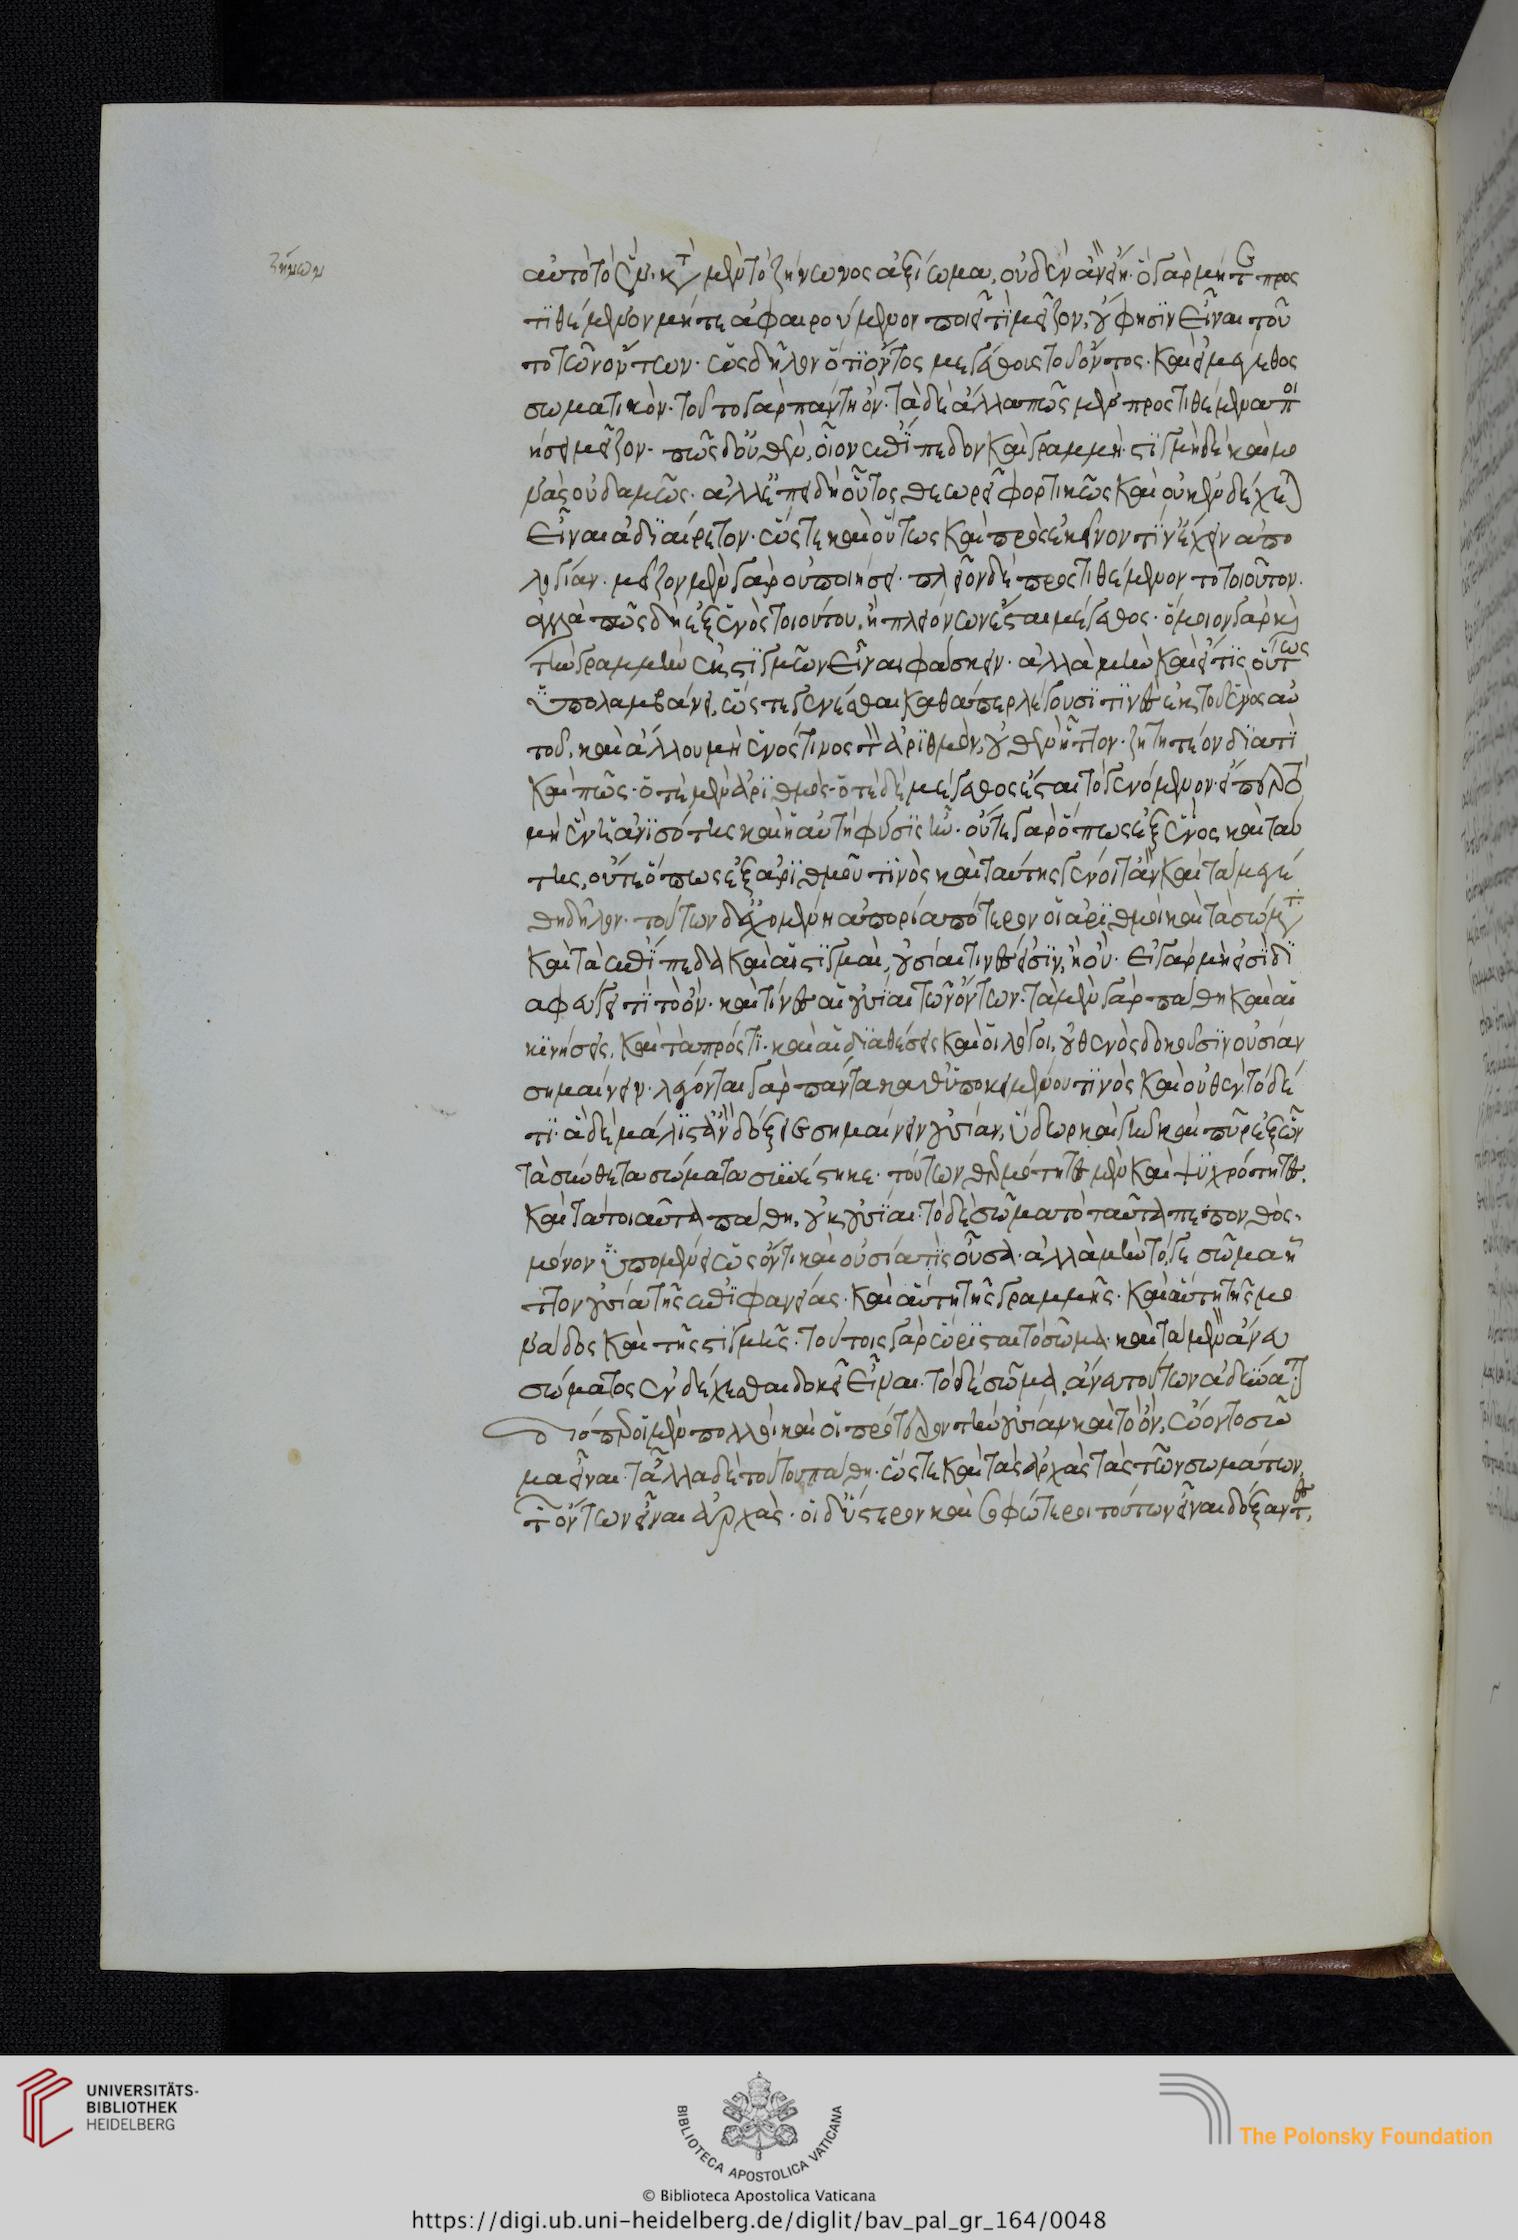 ζήνων
αὐτὸ τὸ ἕν. κατὰ μὲν τὸ ζήνωνος ἀξίωμα, οὐδὲν ἂν εἴη. ὃ γὰρ μήτε προς
τιθέμενον μήτε ἀφαιρούμενον ποιεῖ τὶ μεῖζον, οὔ φησιν εἶναι τοῦ
το τῶν ὄντων. ὡς δῆλον ὅτι ὄντος μεγέθους τοῦ ὄντος. καὶ εἰ μέγεθος
σωματικόν. τοῦτο γὰρ πάντη ὄν. τὰ δὲ ἄλλα πῶς μὲν προστιθέμενα ποι
ήσει μεῖζον. πῶς δ' οὐθέν, οἷον ἐπίπεδον καὶ γραμμή. στιγμὴ δὲ καὶ μο
νὰς οὐδαμῶς. ἀλλ' ἐπειδὴ οὗτος θεωρεῖ φορτικῶς καὶ οὐκ ἐνδέχεται
εἶναι ἀδιαίρετον. ὥστε καὶ οὕτως καὶ πρὸς ἐκεῖνον τίν' ἔχειν ἀπο
λογίαν. μεῖζον μὲν γὰρ οὐ ποιήσει. πλεῖον δὲ προστιθέμενον τὸ τοιοῦτον.
ἀλλὰ πῶς δὴ ἐξ ἑνὸς τοιούτου, ἢ πλειόνων ἔσται μέγεθος. ὅμοιον γὰρ καὶ
τὴν γραμμὴν ἐκ στιγμῶν εἶναι φάσκειν. ἀλλὰ μὴν καὶ εἴ τις οὕτως
ὑπολαμβάνει, ὥστε γενέσθαι καθάπερ λέγουσί τινες ἐκ τοῦ ἑνὸς αὐ
τοῦ, καὶ ἄλλου μὴ ἑνός τινος τὸν ἀριθμὸν, οὐθὲν ἧττον. ζητητέον διατὶ
καὶ πῶς. ὁτὲ μὲν ἀριθμὸς. ὁτὲ δὲ μέγεθος ἔσται τὸ γενόμενον. εἴπερ τὸ
μὴ ἓν ἡ ἀνισότης καὶ ἡ αὐτὴ φύσις ἦν. οὔτε γὰρ ὅπως ἐξ ἑνὸς καὶ ταύ
της, οὔτε ὅπως ἐξ ἀριθμοῦ τινὸς καὶ ταύτης γένοιτ' ἂν καὶ τὰ μεγέ
θη δῆλον. τούτων δ' ἐχομένη ἀπορία πότερον οἱ ἀριθμοὶ καὶ τὰ σώματα
καὶ τὰ ἐπίπεδα καὶ αἱ στιγμαὶ, οὐσίαι τινές εἰσιν, ἢ οὔ. εἰ γὰρ μὴ εἰσὶ δι
αφεύγει τί τὸ ὄν. καὶ τίνες αἱ οὐσίαι τῶν ὄντων. τὰ μὲν γὰρ πάθη καὶ αἱ
κινήσεις, καὶ τὰ πρός τι. καὶ αἱ διαθέσεις καὶ οἱ λόγοι, οὐθενὸς δοκοῦσιν οὐσίαν
σημαίνειν. λέγονται γὰρ πάντα καθ' ὑποκειμένου τινὸς καὶ οὐθὲν τόδε
τι. ἃ δὲ μάλιστ' ἂν δόξειε σημαίνειν οὐσίαν, ὕδωρ καὶ γῆ καὶ πῦρ ἐξ ὧν
τὰ σύνθετα σώματα συνέστηκε. τούτων θερμότητες μὲν καὶ ψυχρότητες.
καὶ τὰ τοιαῦτα πάθη, οὐκ οὐσίαι. τὸ δὲ σῶμα τὸ ταῦτα πεπονθὸς.
μόνον ὑπομένει ὡς ὄν τι καὶ οὐσία τὶς οὖσα. ἀλλὰ μὴν τό γε σῶμα ἧ
ττον οὐσία τῆς ἐπιφανείας. καὶ αὕτη τῆς γραμμῆς. καὶ αὕτη τῆς μο
νάδος καὶ τῆς στιγμῆς. τούτοις γὰρ ὥρισται τὸ σῶμα. καὶ τὰ μὲν ἄνευ
σώματος ἐνδέχεσθαι δοκεῖ εἶναι. τὸ δὲ σῶμα, ἄνευ τούτων ἀδύνατον
διόπερ οἱ μὲν πολλοὶ καὶ οἱ πρότερον τὴν οὐσίαν καὶ τὸ ὄν, ᾤοντο σῶ
μα εἶναι. τὰ ἄλλα δὲ τούτου πάθη. ὥστε καὶ τὰς ἀρχὰς τὰς τῶν σωμάτων,
τῶν ὄντων εἶναι ἀρχὰς. οἱ δ' ὕστερον καὶ σοφώτεροι τούτων εἶναι δόξαντες,
UNIVERSITÄTS-
BIBLIOTHEK
HEIDELBERG
BIBLIOTECA APOSTOLICA VATICANA
The Polonsky Foundation
© Biblioteca Apostolica Vaticana
https://digi.ub.uni-heidelberg.de/diglit/bav_pal_gr_164/0048